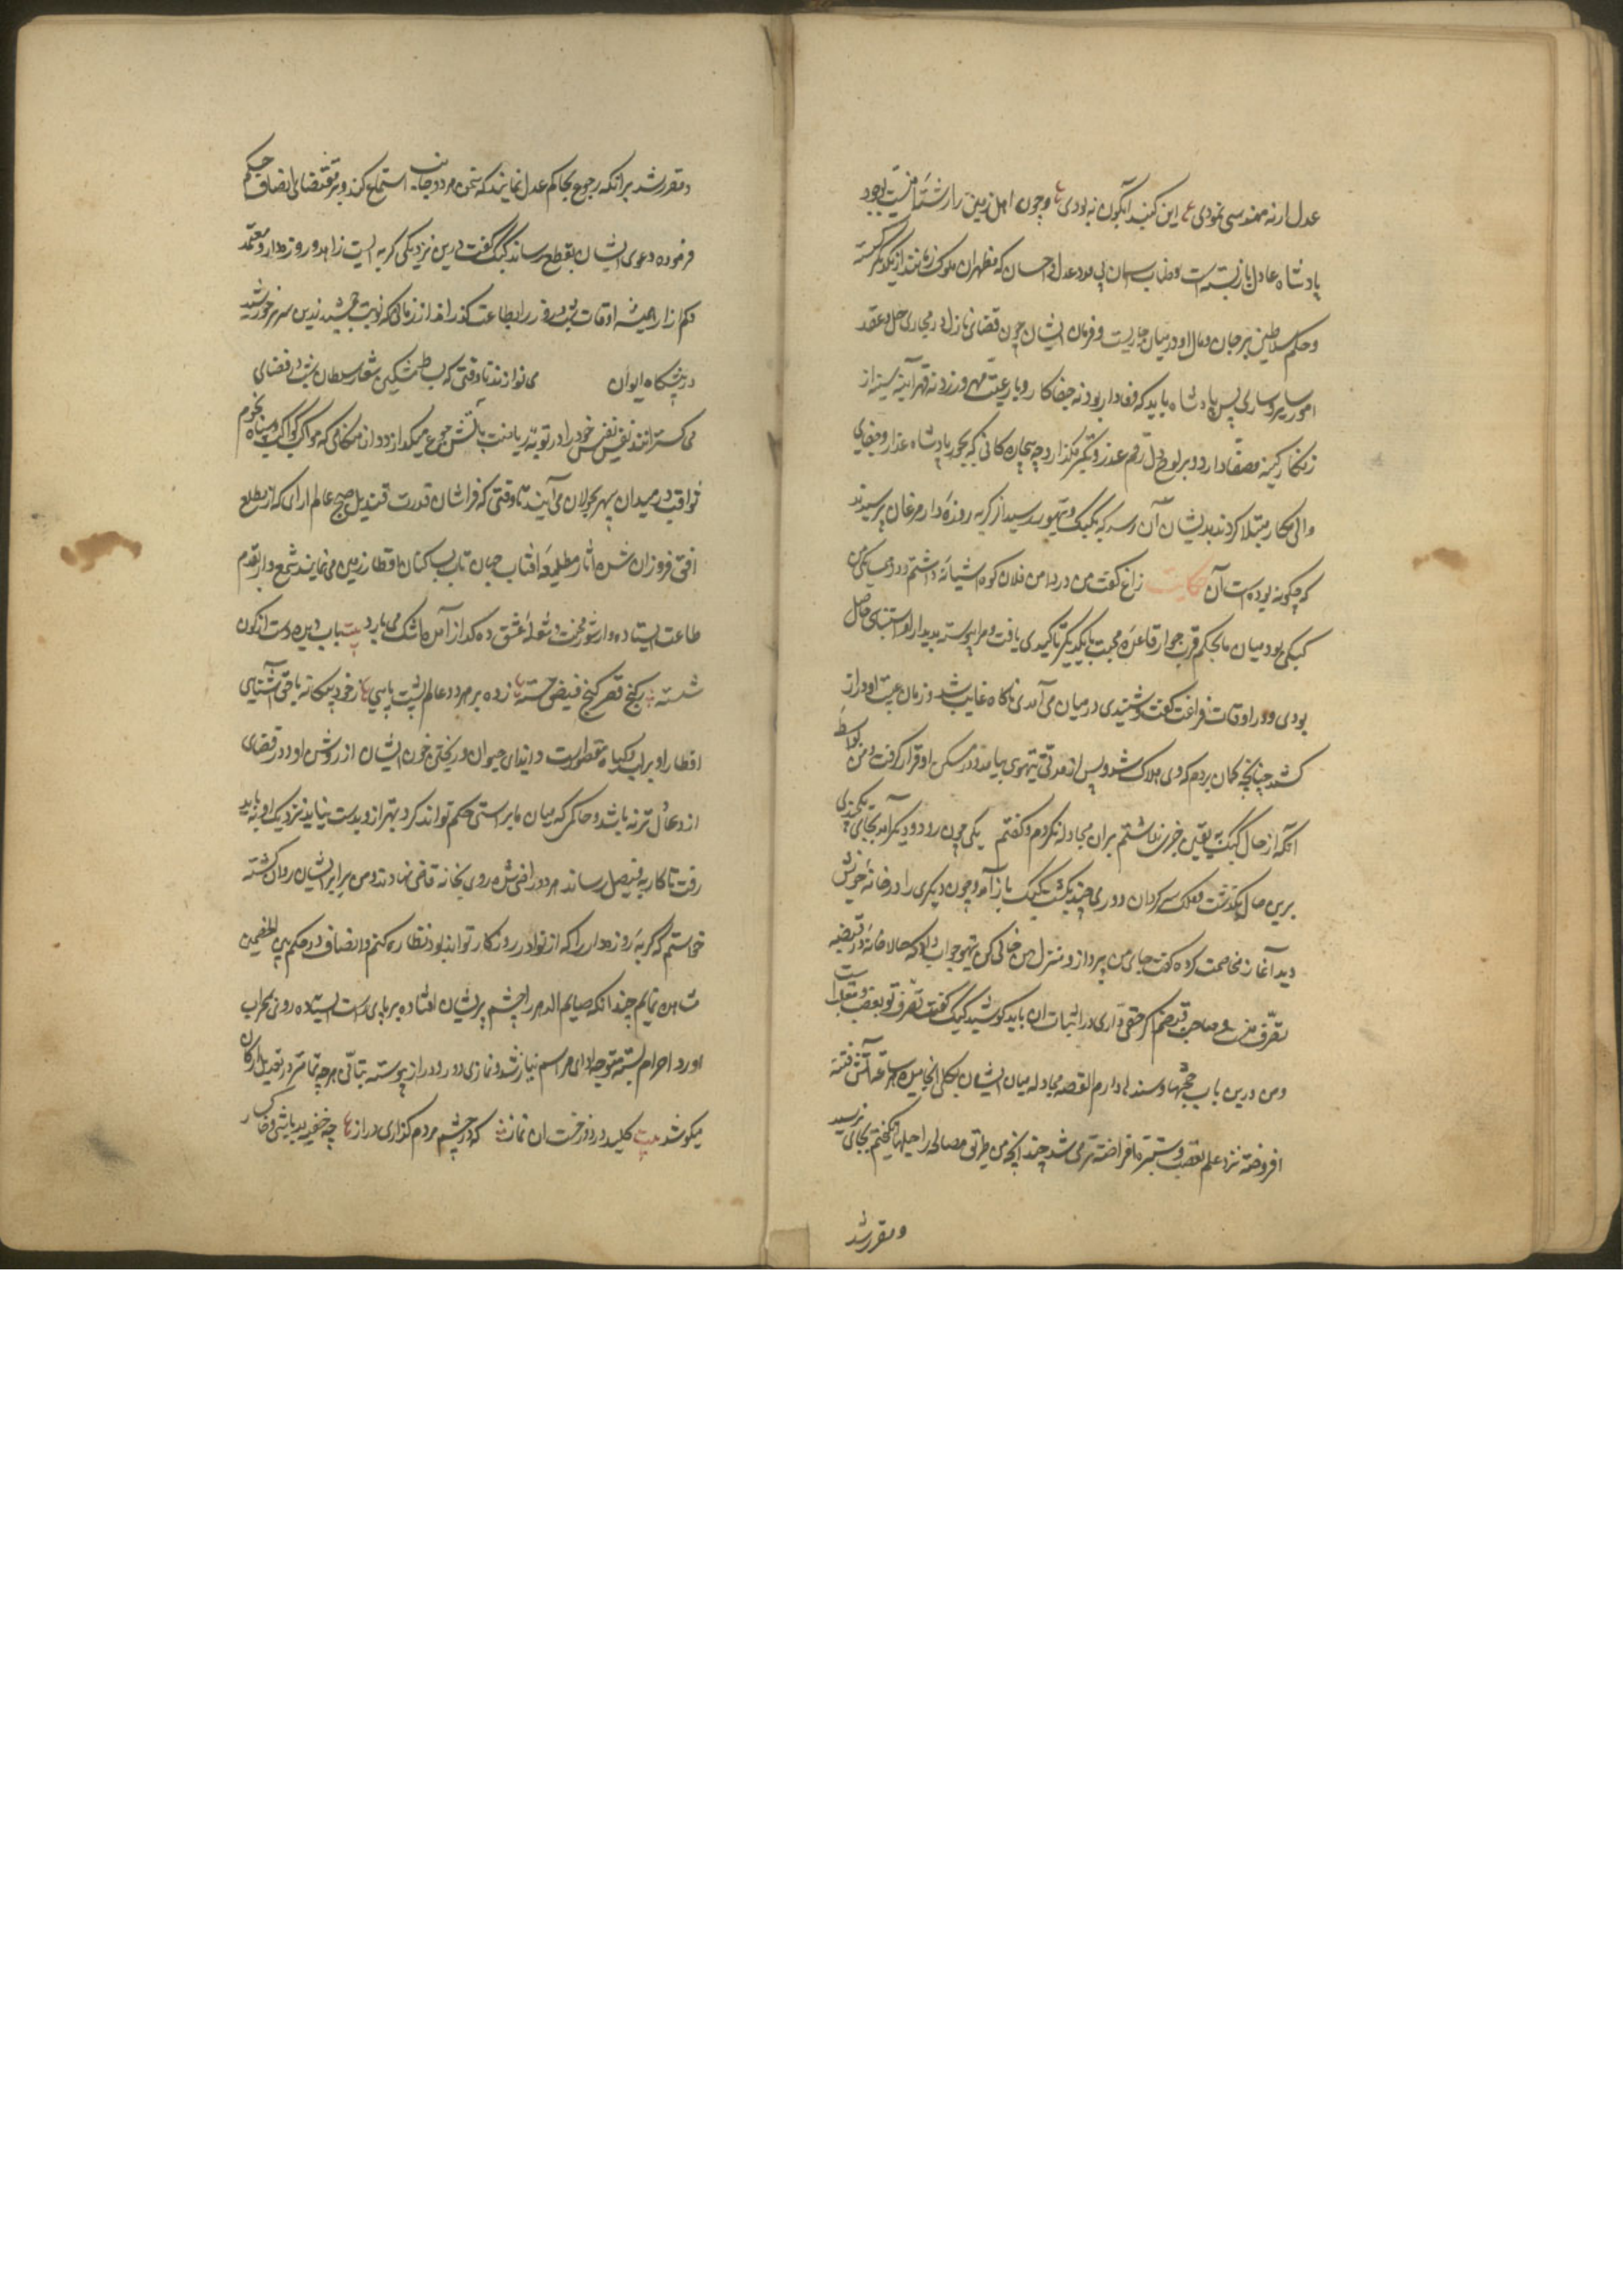 عدل ار نه مهندسی نمودی ع این کنبد آبکون نه بودی ع و چون اهل زمین را رشته امنیت بوجود
پادشاه عادل باز بسته است و طناب سمان بی مدد عدل و احسان که مظهران ملوک زمانند از یکدیکر کسسته
و حکم سلاطین بر جان و مال او در میان جاریست و فرمان ایشان چون قضای نازل در مجاری حل و عقد
امور سایر و ساری پس پادشاه باید که وفادار بود نه جفاکار و با رعیت مهر ورزد نه قهر آینه سینه از
زنکار کینه مصفا دارد و بر لوح دل رقم عذر و تکبر نکذارد چه بیچاره کانی که بجور پادشاه غدار و جفای
والی مکار مبتلا کردند بدیشان آن رسد که بکبک و تیهو رسید از کربه روزه دار مرغان پرسیدند
که چکونه بوده است آن حکایت زاغ کفت من در دامن فلان کوه آشیانه داشتم و در همسایکی من
کبکی بود میان ما بحکم قرب جوار قاعده محبت با یکدیکر تاکیدی یافت و مرا پیوسته بدیدار او استیناسی حاصل
بودی و در اوقات فراغت کفت و شنیدی در میان می آمدی ناکاه غایب شد و زمان غیبت او دراز
کشد چنانچه کمان بردم که وی هلاک شد و پس از مدتی تیهوی بیامد و در مسکن او قرار کرفت و من بواسطه
آنکه از حال کبک به یقین خبری نداشتم بران مجادله نکردم و کفتم یکی چون رود دیکر آمد بجای یکچندی
برین حال بکذشت و فلک سرکردان دوری چند بکشت کبک باز آمد و چون دیکری را در خانه خویش
دید آغاز مخاصمت کرده کفت جای من بپرداز و منزل من خالی کن تیهو جواب داد که حالا خانه در قبضه
تصرف منست و صاحب قبضم اکر حقی داری در اثبات ان باید کوشید کبک کفت تصرف تو بغصب و تغلب است
و من درین باب حجتها و سندها دارم القصه مجادله میان ایشان بکلی انجامید هر ساعت آتش فتنه
افروخته تر و علم تعصب و ستیزه افراخته تر می شد چندانچه من طریق مصالحه را حیلها انکیختم بجای نرسید
و مقرر شد
و مقرر شد برانکه رجوع بحاکم عدل نمایند که سخن هر دو جانب استماع کند و بر مقتضای انصاف حکم
فرموده دعوی ایشان بقطع رساند کبک کفت درین نزدیکی کربه ایست زاهد و روزه دار و متعبد
کم ازار همیشه اوقات شب و روز را بطاعت کذراند از زمانی که نوبت جمشید زرین سریر خورشید
در پیشکاه ایوان می نوازند تا وقتی که بساط مشکین شعار سلطان شب در فضای
می کسترانند نفس نفیس خود را در بوته ریاضت باتش جوع میکدازد و از هنکامی که مواکب کواکب و سپاه نجوم
ثواقب در میدان سپهر بجولان می آیند تا وقتی که فراشان قدرت قندیل صبح عالم ارای که از مطلع
افق فروزان شده اثار طلیعه افتاب جهان تاب بساکنان اقطار زمین می نمایند شمع وار بقدم
طاعت ایستاده وار سوز محبت و شعله عشق ده کداز آمده اشک می بارد بیت باب دیده دست از کون
شسته بکنج فقر کنج فیض جسته ع زده بر هر دو عالم پشت پایی ع ز خود بیکانه با حق آشنای
افطار او بر آب و کیاه مقصورست و ایذای حیوان و ریختن خون ایشان از روش او دور قضای
از و عادل تر نه باشد و حاکمی که میان ما براستی حکم تواند کرد بهتر از و بدست نیاید نزدیک او باید
رفت تا کار به فیصل رساند هر دو راضی شده روی بخانه قاضی نهادند و من بر اثر ایشان روان کشته
خواستم که کربه روزه دار را که از نوادر روزکار تواند بود نظاره کنم و انصاف در حکم بین الخصمین
مشاهده نمایم چندانکه صایم الدهر را چشم بر ایشان افتاد بر پای راست ایستاده روی بمحراب
اورد احرام بسته متوجه ادای مراسم نیاز شد و نمازی دور و دراز پیوسته بتانی هر چه تمامتر در تعدیل ارکان
میکوشد بیت کلید در دوزخست ان نماز که در چشم مردم کذاری دراز ع چه خفیه بد باشی و خاکسار